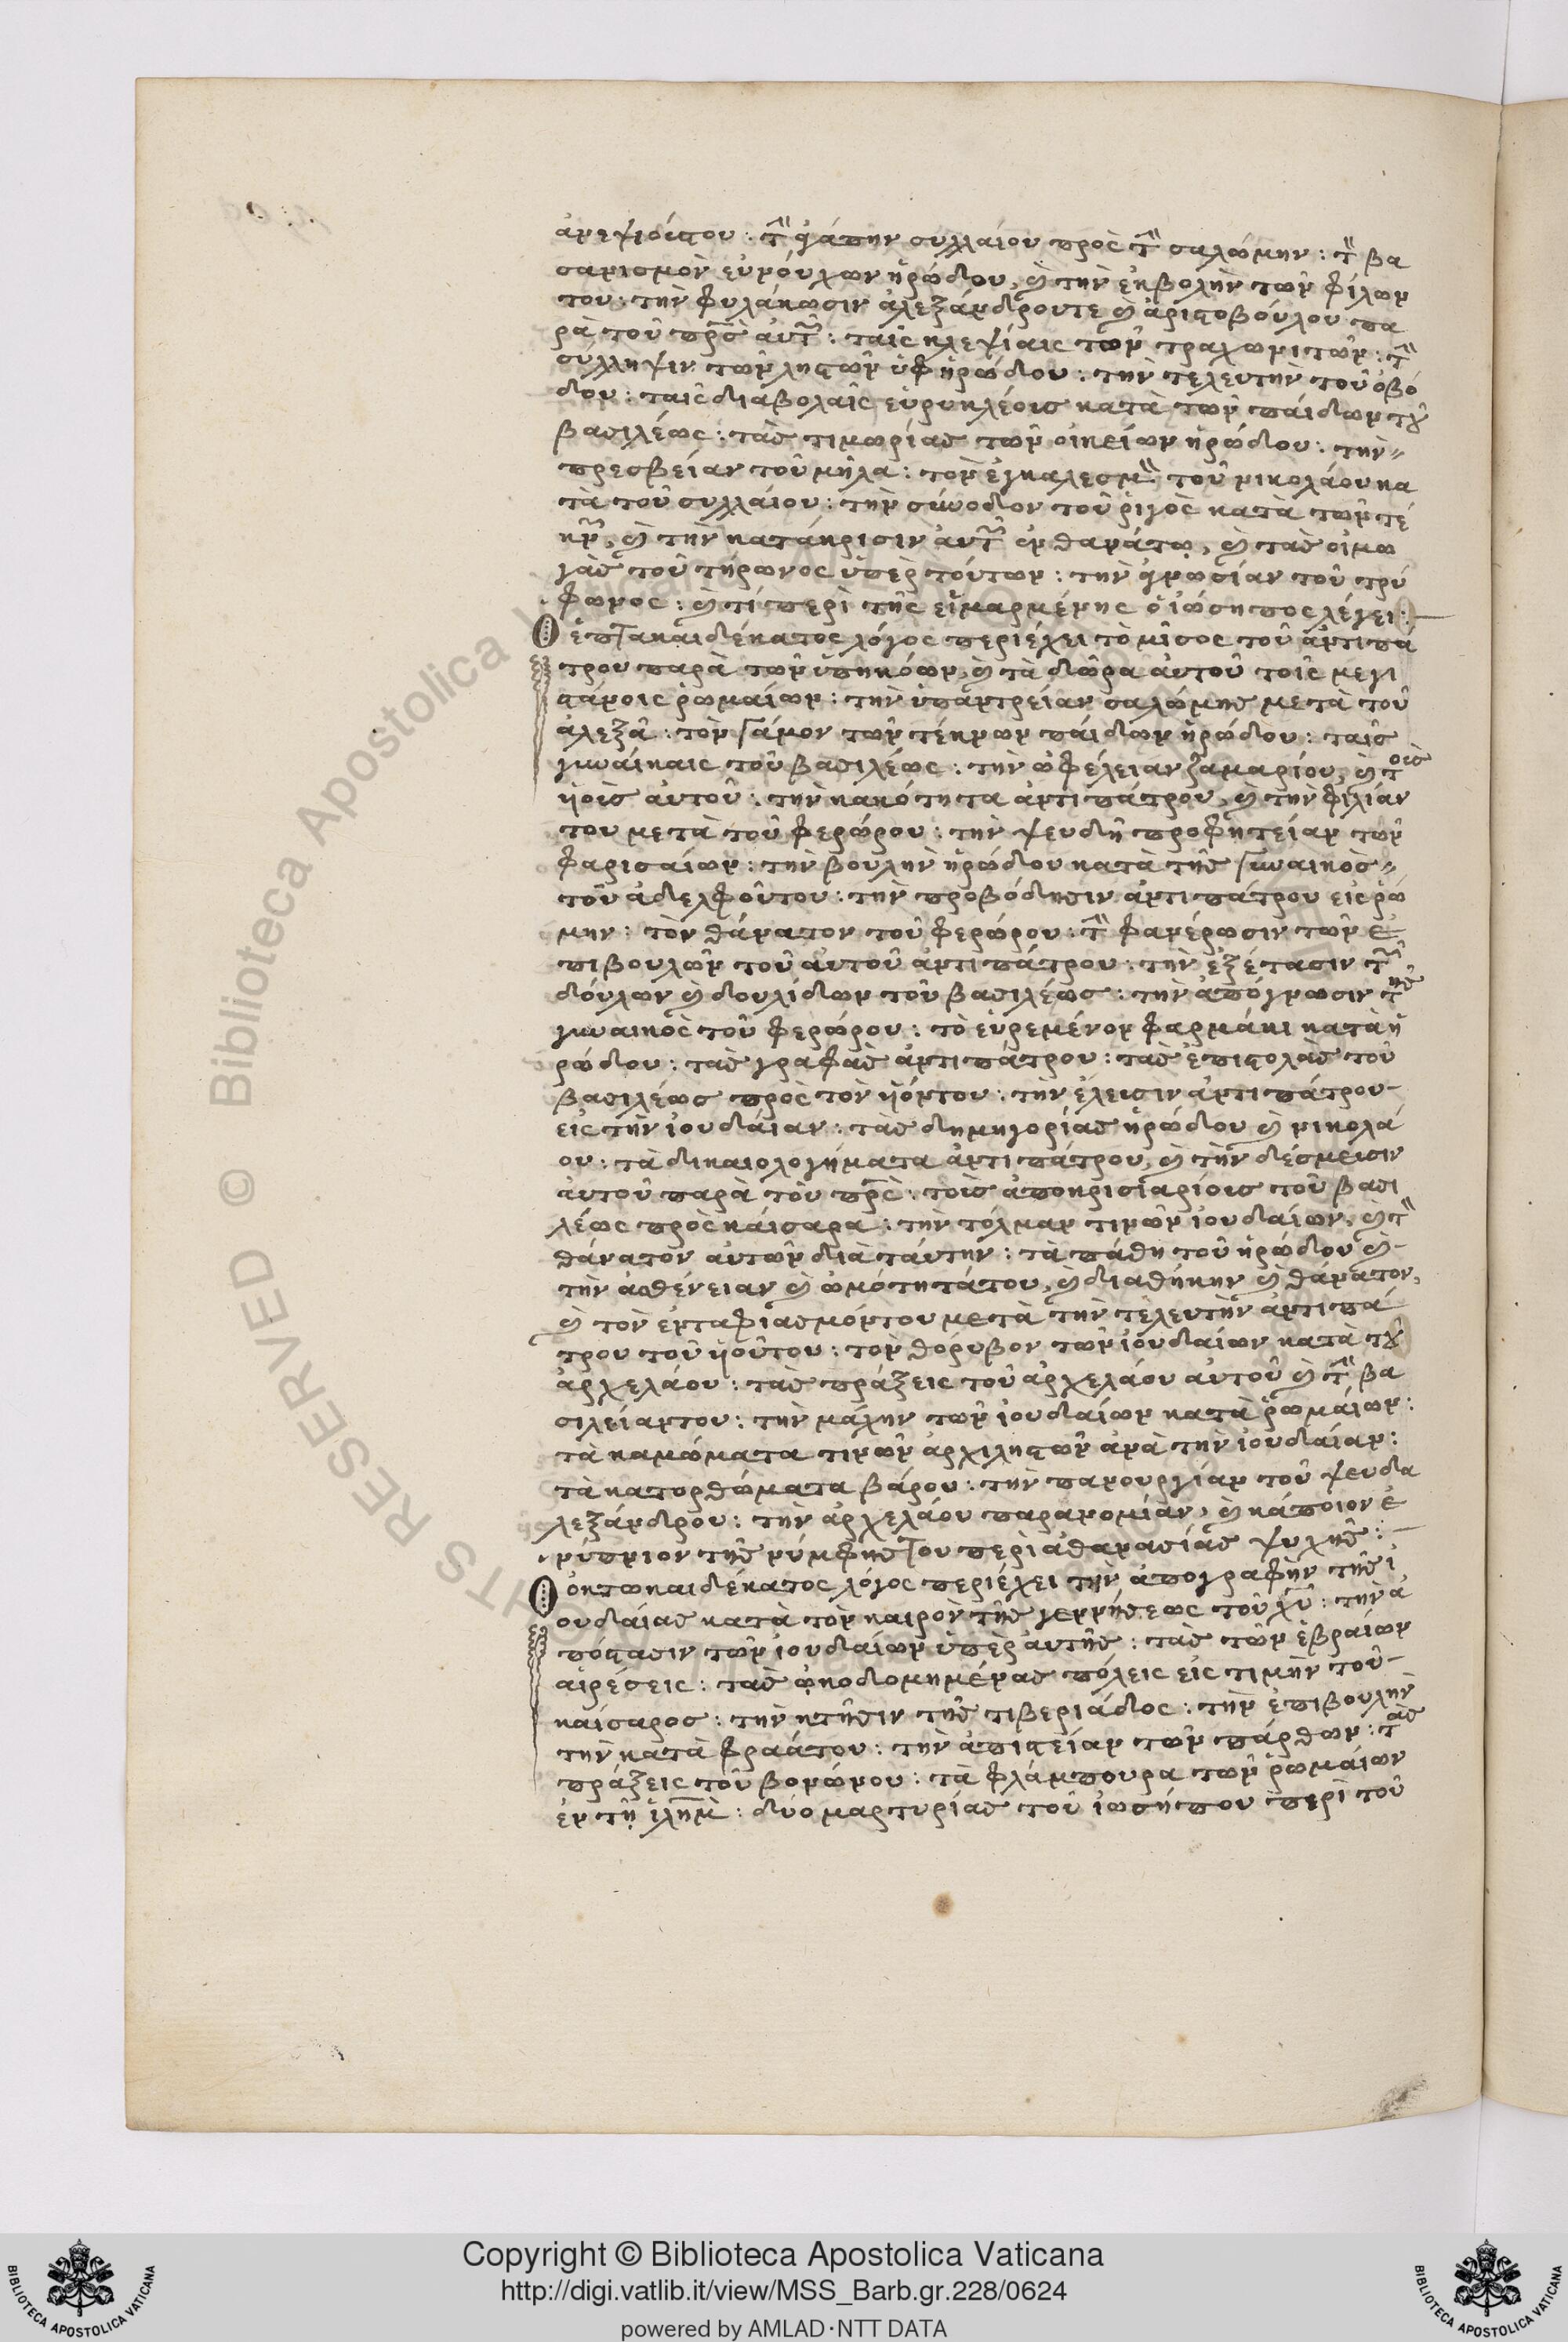 ἀνεψιοῦτου : τὴν ἀγάπην συλλαίου πρὸς τὴν σαλώμην : τὸν βα
σανισμὸν εὐνούχων ἡρώδου, καὶ τὴν ἐκβολὴν τῶν φίλων
του : τὴν φυλάκωσιν ἀλεξάνδρουτε καὶ ἀριστοβούλου πα
ρὰ τοῦ πρς αὐτῶν : ταῖς κλεψίαις τῶν τραχωνιτῶν : τὴν
σύλληψιν τῶν ληστῶν ὑφἡρώδου : τὴν τελευτὴν τοῦ ὀβό
δου : ταῖς διαβολαῖς εὐρυκλέοισ κατὰ τῶν παίδων τοῦ
βασιλέως : τὰς τιμωρίας τῶν οἰκείων ἡρώδου : τὴν
πρεσβείαν τοῦ μῆλα : τὸν ἐγκαλεσμὸν τοῦ νικολάου κα
τὰ τοῦ συλλαίου : τὴν σύνοδον τοῦ ῥιγὸς κατὰ τῶν τέ
κνων, καὶ τὴν κατάκρισιν αὐτῶν ἐν θανάτῳ, καὶ τὰς οἰμω
γὰς τοῦ τήρωνος ὑπὲρ τούτων : τὴν ἀγνωσίαν τοῦ τρύ
φωνος : καὶ τί περὶ τῆς εἱμαρμένης ὁ ἰώσηπος λέγει :
Ὁ ἑπτακαιδέκατος λόγος περιέχει τὸ μῖσος τοῦ ἀντιπά
τρου παρὰ τῶν ὑπηκόων, καὶ τὰ δῶρα αὐτοῦ τοῖς μεγι
στάνοις ῥωμαίων : τὴν ὑπαντρείαν σαλώμης μετὰ τοῦ
ἀλεξᾶ : τὸν γάμον τῶν τέκνων παίδων ἡρώδου : ταῖσ
γυναίκαις τοῦ βασιλέως : τὴν ὠφέλειαν ζαμαρίου, καὶ τοῖς
ὑοῖς αὐτοῦ : τὴν κακότητα ἀντιπάτρου, καὶ τὴν φιλίαν
του μετὰ τοῦ φερώρου : τὴν ψευδῆ προφητείαν τῶν
φαρισαίων : τὴν βουλὴν ἡρώδου κατὰ τῆς γυναικὸσ
τοῦ ἀδελφοῦτου : τὴν προβόδησιν ἀντιπάτρου εἰς ῥώ
μην : τὸν θάνατον τοῦ φερώρου : τὴν φανέρωσιν τῶν ἐ
πιβουλῶν τοῦ αὐτοῦ ἀντιπάτρου : τὴν ἐξέτασιν τῶν
δούλων καὶ δουλίδων τοῦ βασιλέωσ : τὴν ἀπόγνωσιν τῆς
γυναικὸς τοῦ φερώρου : τὸ εὑρεμένον φαρμάκι κατὰ ἡ
ρώδου : τὰς γραφὰς ἀντιπάτρου : τὰς ἐπιστολὰς τοῦ
βασιλέωσ πρὸς τὸν ὑόντου : τὴν ἔλευσιν ἀντιπάτρου
εἰς τὴν ἰουδαίαν : τὰς δημηγορίας ἡρώδου καὶ νικολά
ου : τὰ δικαιολογήματα ἀντιπάτρου, καὶ τὴν δέσμευσιν
αὐτοῦ παρὰ τὸν πρς : τοῖσ ἀποκρισιαρίοισ τοῦ βασι
λέως πρὸς καίσαρα : τὴν τόλμαν τινῶν ἰουδαίων, καὶ τὸν
θάνατον αὐτῶν διὰ ταύτην : τὰ πάθη τοῦ ἡρώδου καὶ
τὴν ἀσθένειαν καὶ ὠμότητάτου, καὶ διαθήκην καὶ θάνατον,
καὶ τὸν ἐνταφιασμόντου μετὰ τὴν τελευτὴν ἀντιπά
τρου τοῦ ὑοῦτου : τὸν θόρυβον τῶν ἰουδαίων κατὰ τοῦ
ἀρχελάου : τὰς πράξεις τοῦ ἀρχελάου αὐτοῦ καὶ τὴν βα
σιλείαντου : τὴν μάχην τῶν ἰουδαίων κατὰ ῥωμαίων :
τὰ καμώματα τινῶν ἀρχιληστῶν ἀνὰ τὴν ἰουδαίαν :
τὰ κατορθώματα βάρου : τὴν πανουργίαν τοῦ ψευδα
λεξάνδρου : τὴν ἀρχελάου παρανομίαν, καὶ κάποιον ἐ
νύπνιον τῆς νύμφης του περὶ ἀθανασίας ψυχῆς :
Ὁ ὀκτωκαιδέκατος λόγος περιέχει τὴν ἀπογραφὴν τῆς ἰ
ουδαίας κατὰ τὸν καιρὸν τῆς γεννήσεως τοῦ χῦ : τὴν ἀ
πόστασιν τῶν ἰουδαίων ὑπὲρ αὐτῆς : τὰς τῶν ἑβραίων
αἱρέσεις : τὰς ᾠκοδομημένας πόλεις εἰς τιμὴν τοῦ
καίσαρος : τὴν κτῆσιν τῆς τιβεριάδος : τὴν ἐπιβουλὴν
τὴν κατὰ φραάτου : τὴν ἀπιστείαν τῶν πάρθων : τὰς
πράξεις τοῦ βονώνου : τὰ φλάμπουρα τῶν ῥωμαίων
ἐν τῇ ἱλημ : δύο μαρτυρίας τοῦ ἰωσήπου περὶ τοῦ
Copyright © Biblioteca Apostolica Vaticana
http://digi.vatlib.it/view/MSS_Barb.gr.228/0624
powered by AMLAD·NTT DATA
BIBLIOTECA APOSTOLICA VATICANA
BIBLIOTECA APOSTOLICA VATICANA